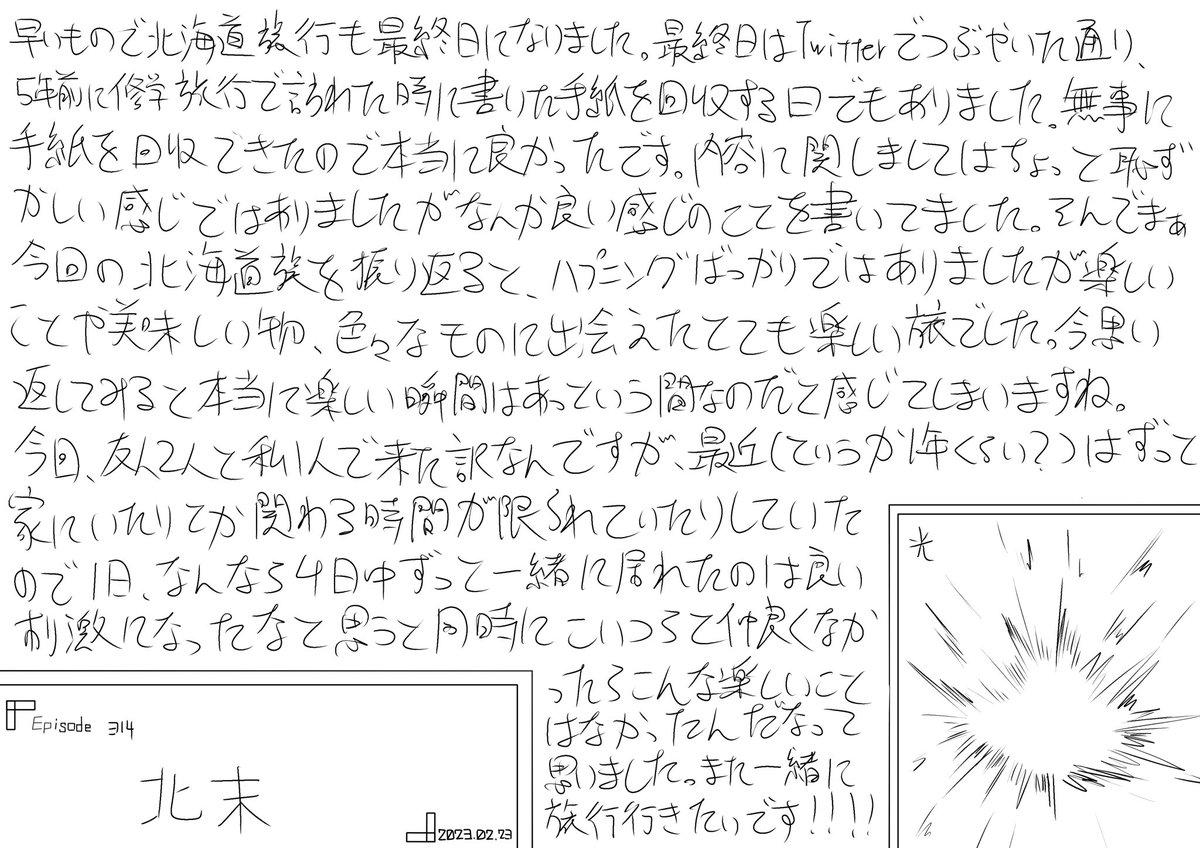 早いもので北海道旅行も最終日になりました。最終日はTwitterでつぶやいた通り、
5年前に修学旅行で訪れた時に書いた手紙を回収する日でもありました。無事に
手紙を回収できたので本当に良かったです。内容に関しましてはちょっと恥ず
かしい感じではありましたがなんか良い感じのことを書いてました。そんでまぁ
今回の北海道旅を振り返ると、ハプニングばっかりではありましたが楽しい
ことや美味しい物、色々なものに出会えたとても楽しい旅でした。今思い
返してみると本当に楽しい瞬間はあっという間なのだと感じてしまいますね。
今回、友人2人と私1人で来た訳なんですが、最近(ていうか1年くらい?)はずっと
家にいたりとか関わる時間が限られていたりしていた
ので1日、なんなら4日中ずっと一緒に居れたのは良い
刺激になったなと思うと同時にこいつらと仲良くなか
ったらこんな楽しいこと
はなかったんだなって
思いました。また一緒に
旅行行きたいです!!!!
光
Episode 314
北末
2023.02.23